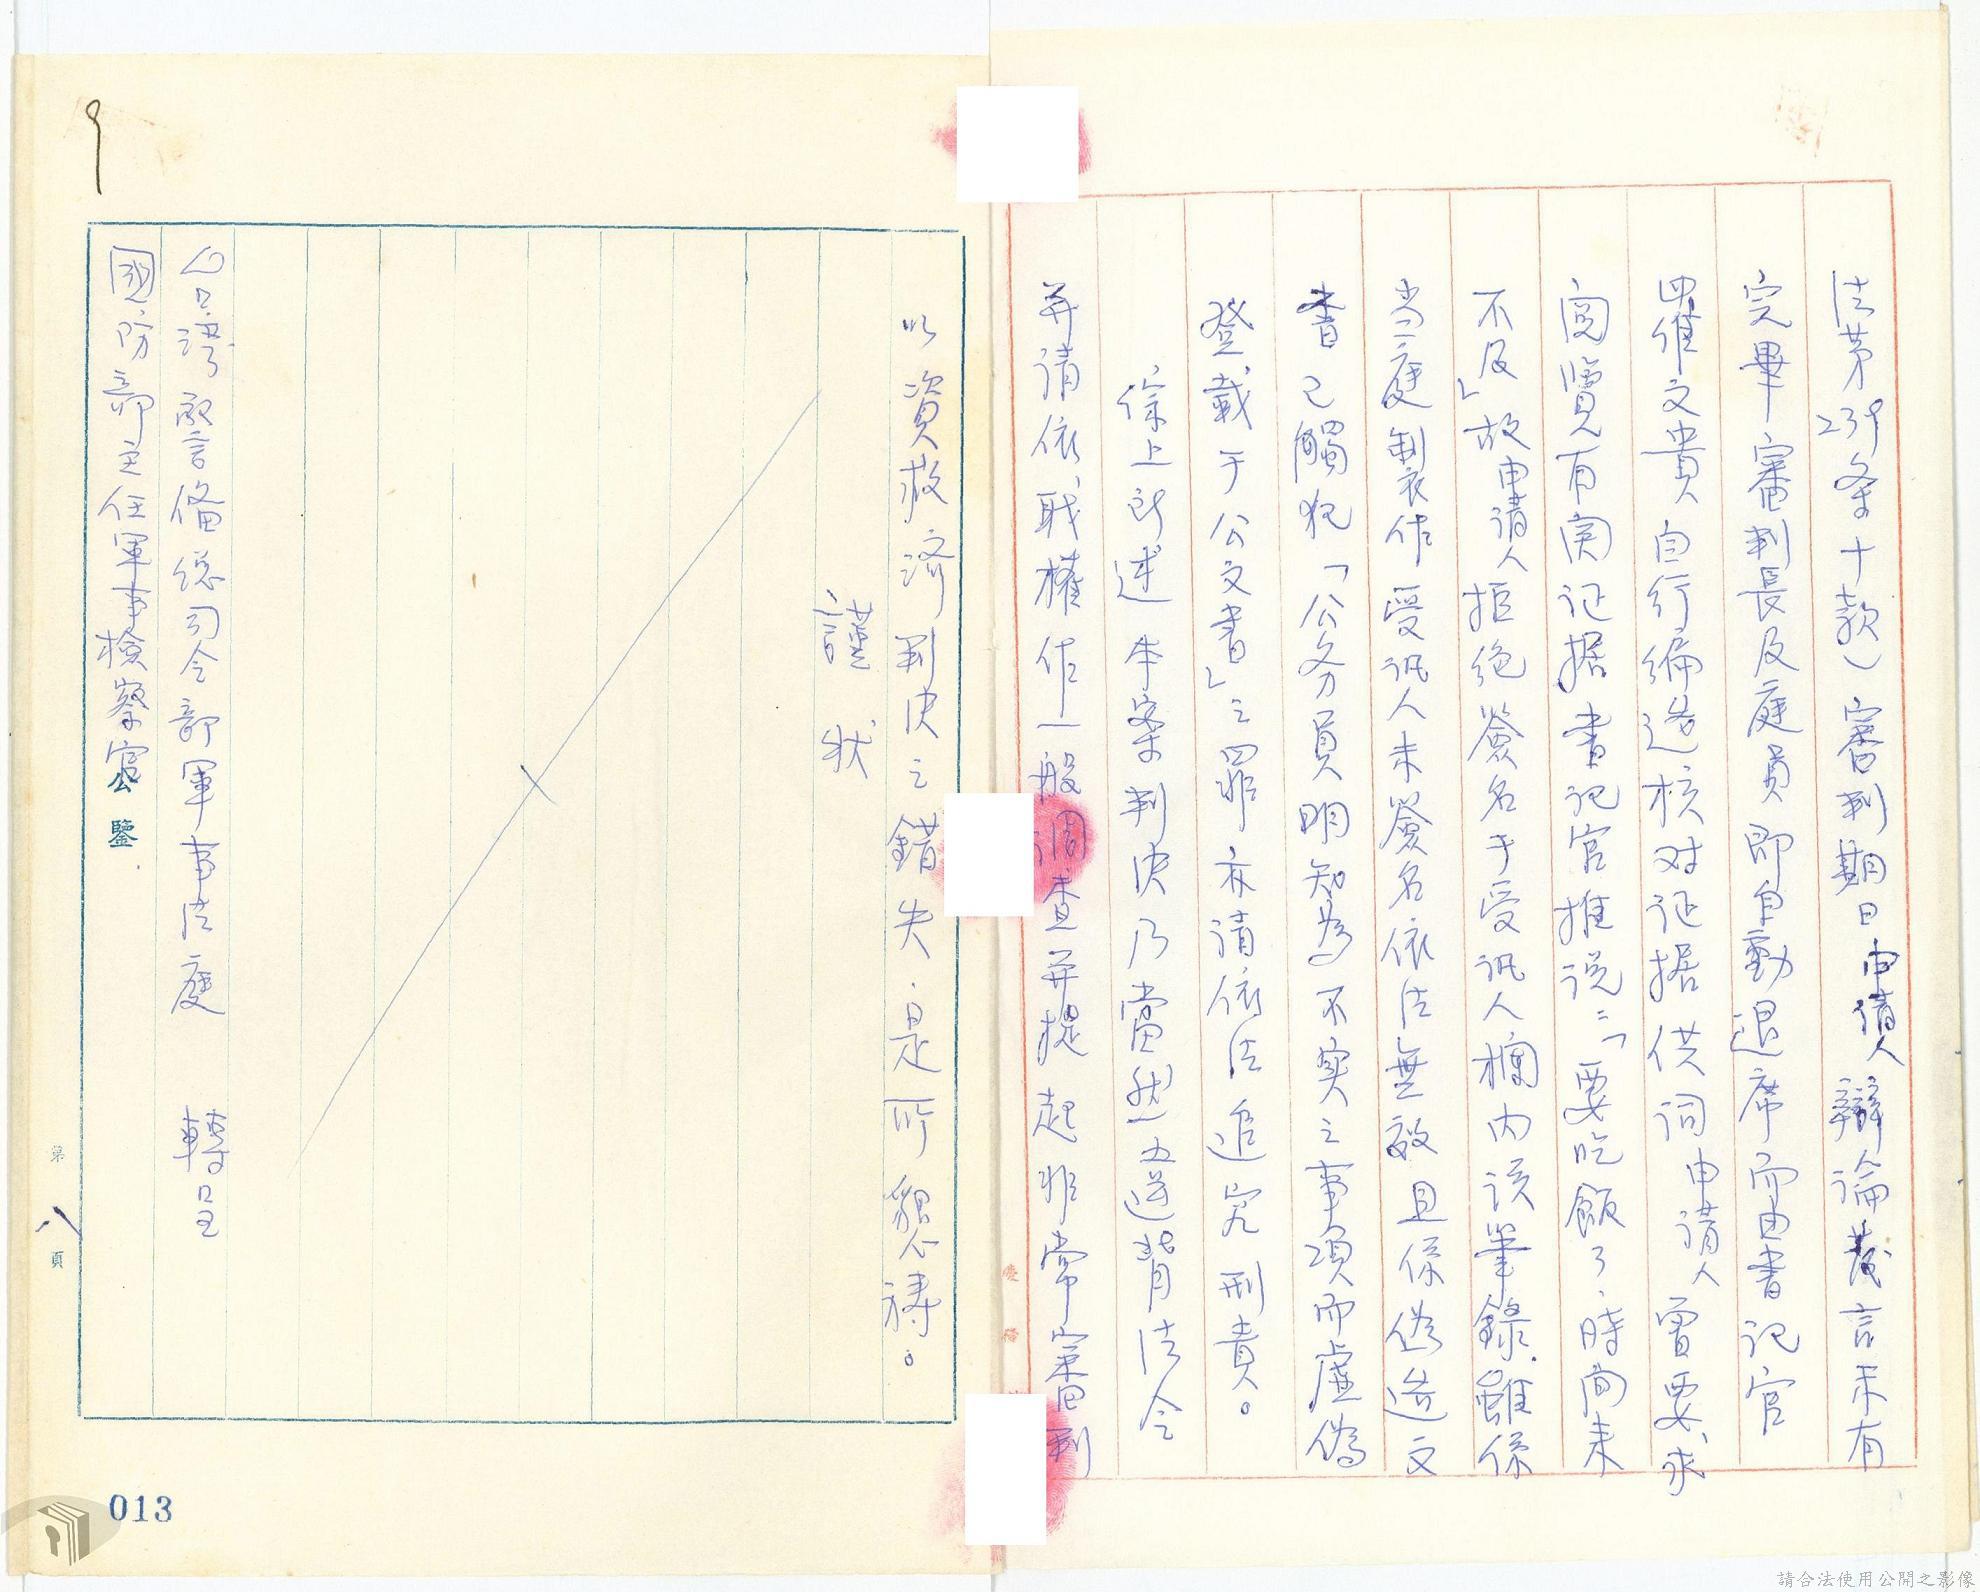 法第239条十款)審判期日申請人辯論發言未有
完畢審判長及庭員即自動退席而由書記官
羅文貴自行編造核对证据供词申請人曾要求
閱覽有関证据書记官推说:「要吃飯了.時间来
不及」故申請人拒絕簽名于受讯人欄内该筆録雖係
当庭製作受讯人未簽名依法無效且係偽造文
書已觸犯「公务員明知為不实之事項而虛偽
登載于公文書」之罪亦請依法追究刑責。
綜上所述本案判决乃當然違背法令
并请依職權作一般調查并提起非常審判
以資救濟判决之錯失.是所懇禱。
謹狀
台湾警備総司令部軍事法庭 轉呈
國防部主任軍事檢察官公鑒.
第八頁
013
請合法使用公開之影像